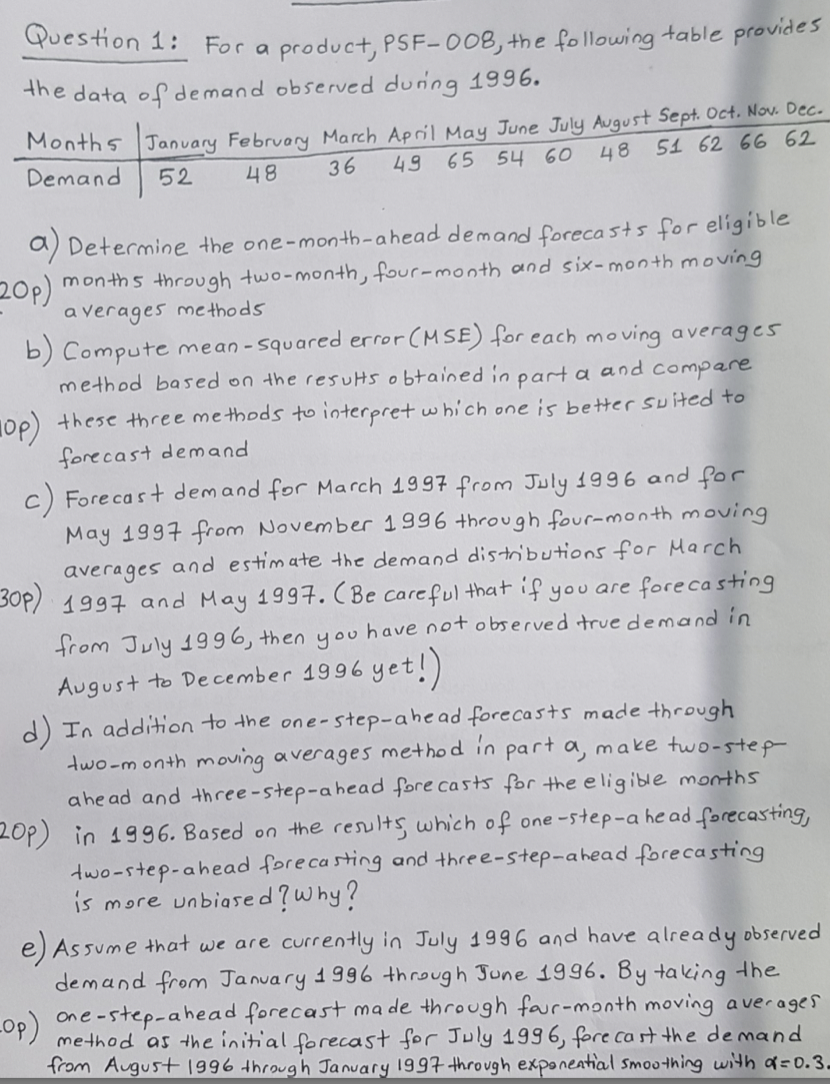 Question 1: For a product, PSF-008, the following table provides
the data of demand observed during 1996.
Months January February March April May June July August Sept. Oct. Nov. Dec.
Demand 52 48 36 49 65 54 60 48 51 62 66 62
a) Determine the one-month-ahead demand forecasts for eligible
20p) months through two-month, four-month and six-month moving
averages methods
b) Compute mean-squared error (MSE) for each moving averages
method based on the results obtained in part a and compare
10p) these three methods to interpret which one is better suited to
forecast demand
c) Forecast demand for March 1997 from July 1996 and for
May 1997 from November 1996 through four-month moving
averages and estimate the demand distributions for March
30p) 1997 and May 1997. (Be careful that if you are forecasting
from July 1996, then you have not observed true demand in
August to December 1996 yet!)
d) In addition to the one-step-ahead forecasts made through
two-month moving averages method in part a, make two-step-
ahead and three-step-ahead forecasts for the eligible months
20p) in 1996. Based on the results, which of one-step-ahead forecasting,
two-step-ahead forecasting and three-step-ahead forecasting
is more unbiased? Why?
e) Assume that we are currently in July 1996 and have already observed
demand from January 1996 through June 1996. By taking the
0p) one-step-ahead forecast made through four-month moving averages
method as the initial forecast for July 1996, forecast the demand
from August 1996 through January 1997 through exponential smoothing with α=0.3.